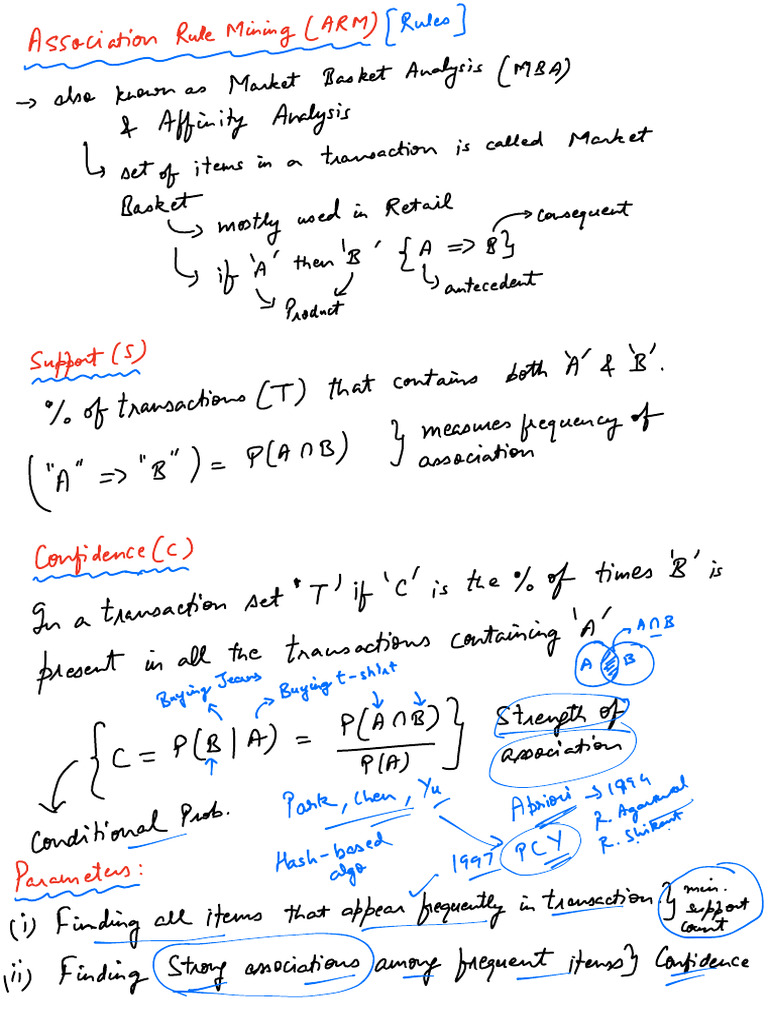 Association Rule Mining (ARM) [Rules]
→ also known as Market Basket Analysis (MBA)
& Affinity Analysis
↳ set of items in a transaction is called Market
Basket
↳ mostly used in Retail
↳ if 'A' then 'B' {A => B}
consequent
antecedent
Product
Support (S)
% of transactions (T) that contains both 'A' & 'B'.
("A" => "B") = P(A ∩ B) } measures frequency of
association
Confidence (C)
In a transaction set 'T' if 'C' is the % of times 'B' is
present in all the transactions containing 'A'
A∩B
A B
Buying Jeans
Buying t-shirt
{ C = P(B | A) = P(A ∩ B) / P(A) } Strength of
association
Conditional Prob.
Park, Chen, Yu
Hash-based
algo
1997 PCY
Apriori → 1994
R. Agarawal
R. Shikant
Parameters:
(i) Finding all items that appear frequently in transaction } min.
support
count
(ii) Finding Strong associations among frequent items } Confidence